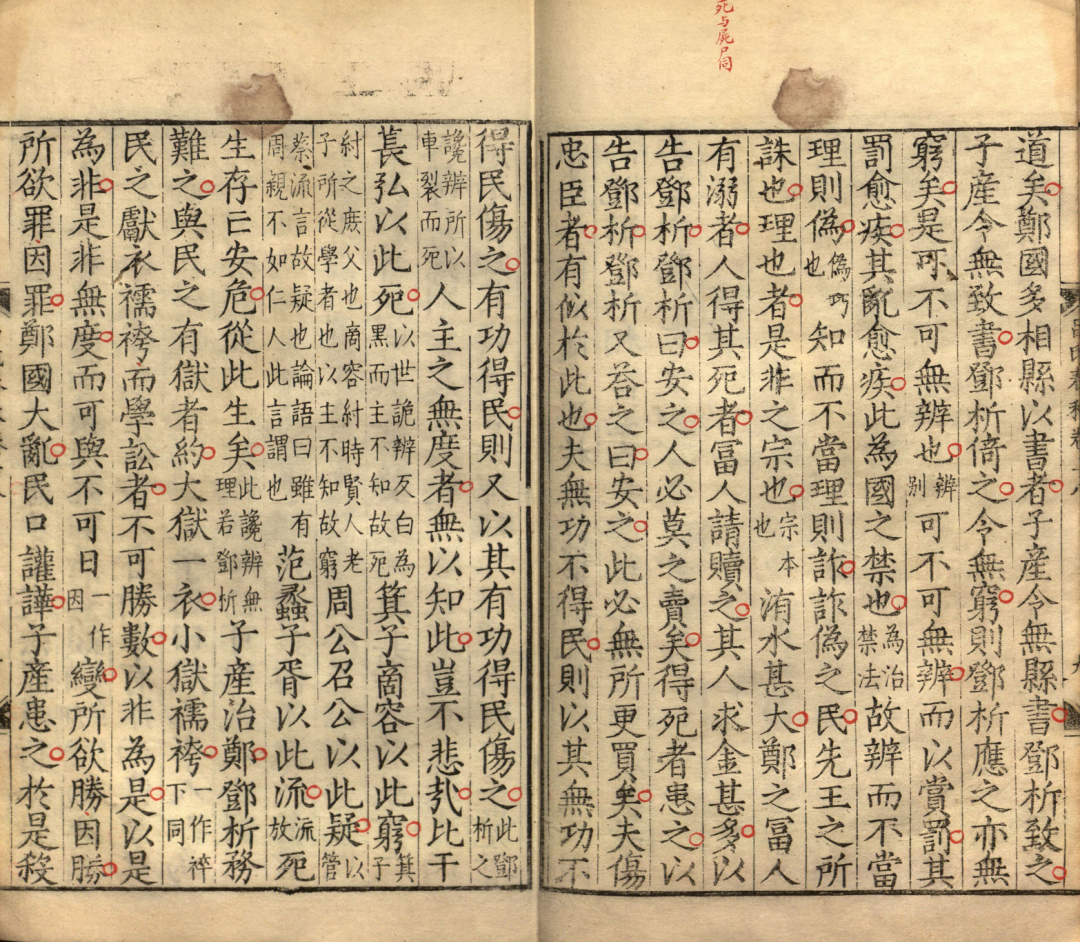 死与屍尸同
道矣鄭國多相縣以書者子產令無縣書鄧析致之
子產令無致書鄧析倚之令無窮則鄧析應之亦無
窮矣是可不可無辨也辨別可不可無辨而以賞罰其
罰愈疾其亂愈疾此為國之禁也為治禁法故辨而不當
理則偽偽巧也知而不當理則詐詐偽之民先王之所
誅也理也者是非之宗也宗本也洧水甚大鄭之富人
有溺者人得其死者富人請贖之其人求金甚多以
告鄧析鄧析曰安之人必莫之賣矣得死者患之以
告鄧析鄧析又荅之曰安之此必無所更買矣夫傷
忠臣者有似於此也夫無功不得民則以其無功不
得民傷之有功得民則又以其有功得民傷之此鄧析之
讒辨所以車裂而死人主之無度者無以知此豈不悲㢤比干
萇弘以此死以世詭辨反白為黑而主不知故死箕子商容以此窮箕子
紂之庶父也商容紂時賢人老子所從學者也以主不知故窮周公召公以此疑以管
蔡流言故疑也論語曰雖有周親不如仁人此言謂也范蠡子胥以此流流放死
生存亡安危從此生矣此讒辨無理若鄧析子產治鄭鄧析務
難之與民之有獄者約大獄一衣小獄襦袴一作裈下同
民之獻衣襦袴而學訟者不可勝數以非為是以是
為非是非無度而可與不可日一作因變所欲勝因勝
所欲罪因罪鄭國大亂民口讙譁子產患之於是殺